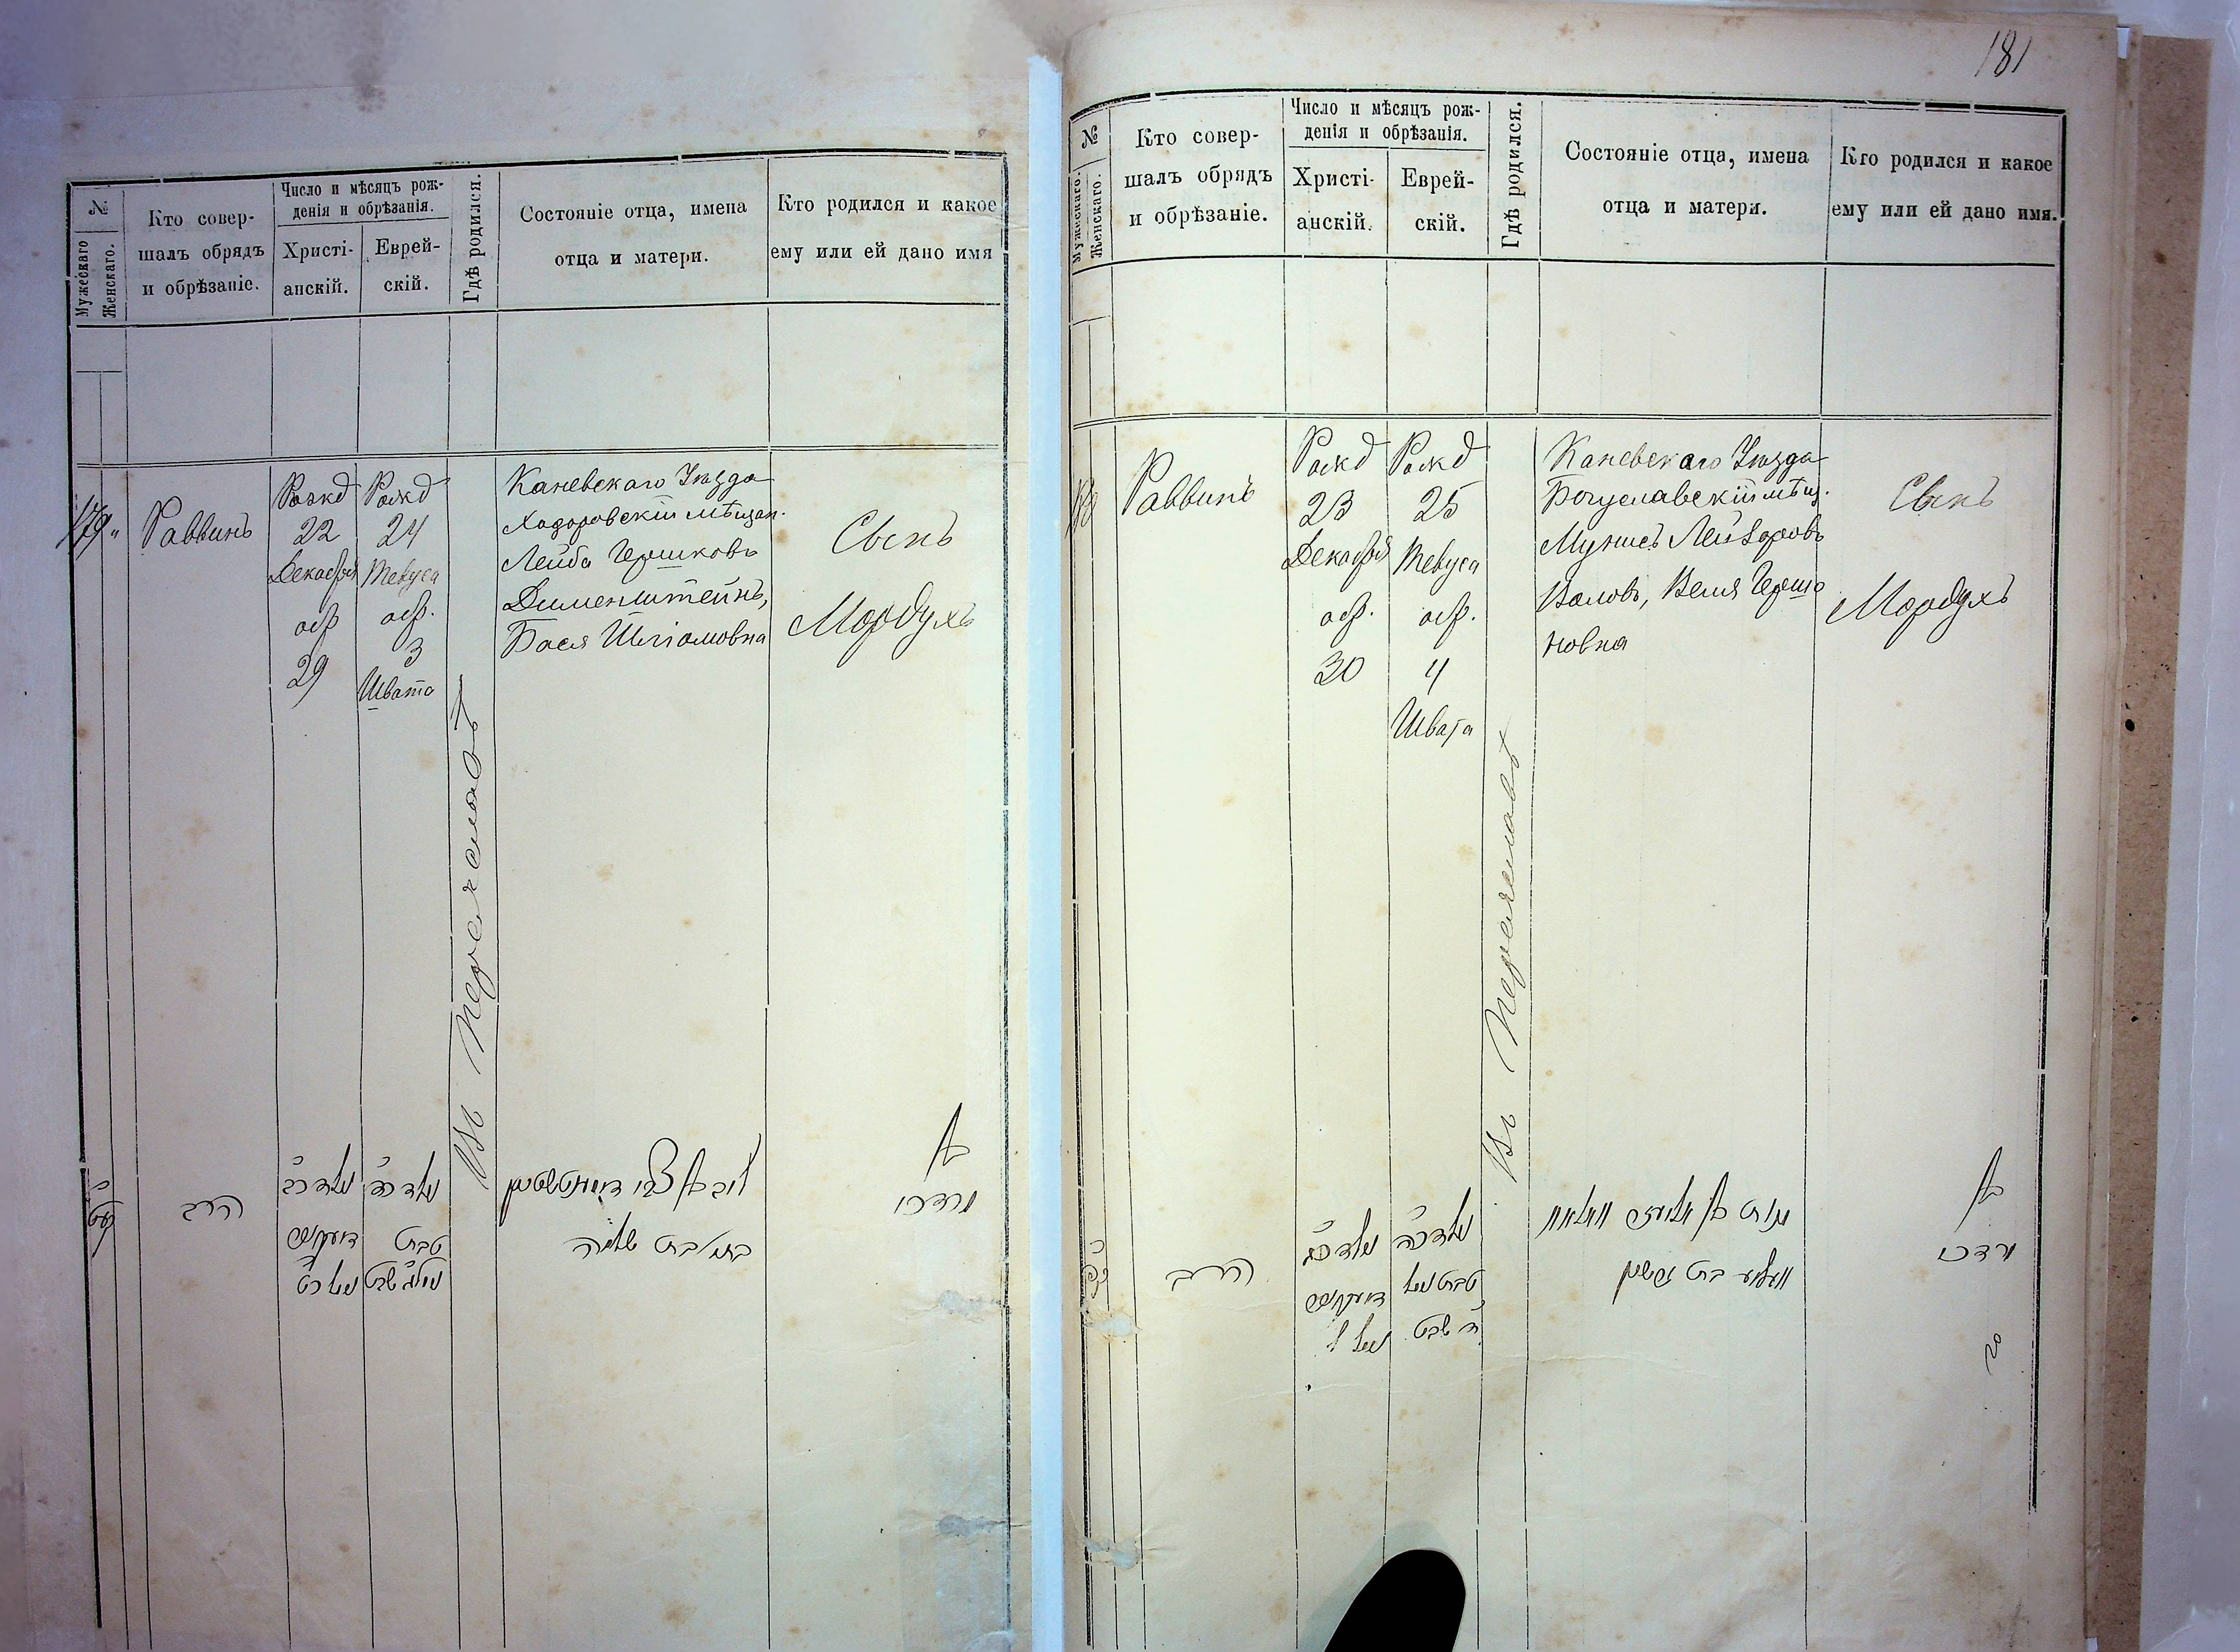 №
Мужескаго
Женскаго.
Кто совер-
шалъ обрядъ
и обрѣзаніе.
Число и мѣсяцъ рож-
денія и обрѣзанія.
Христі-
анскій.
Еврей-
скій.
Гдѣ родился.
Состояніе отца, имена
отца и матери.
Кто родился и какое
ему или ей дано имя
179 "
Раввинъ
Рожд
22
Декабря
обр
29
Рожд
24
Тевуса
обр.
3
Швата
Въ Переяславѣ
Каневскаго Уѣзда
Ходоровскій мѣщан.
Лейба Гершковъ
Дименштейнъ,
Бася Шліомовна
Сынъ
Мордухъ
הרב
טבת
בת שלמה
בן
מרדכי
181
№
Мужескаго.
Женскаго.
Кто совер-
шалъ обрядъ
и обрѣзаніе.
Число и мѣсяцъ рож-
денія и обрѣзанія.
Христі-
анскій.
Еврей-
скій.
Гдѣ родился.
Состояніе отца, имена
отца и матери.
Кто родился и какое
ему или ей дано имя.
Раввинъ
Рожд
23
Декабря
обр.
30
Рожд
25
Тевуса
обр.
4
Швата
Въ Переяславѣ
Каневскаго Уѣзда
Богуславскій мѣщ.
Лейзоровъ
Сынъ
Мордухъ
הרב
בן
מרדכי